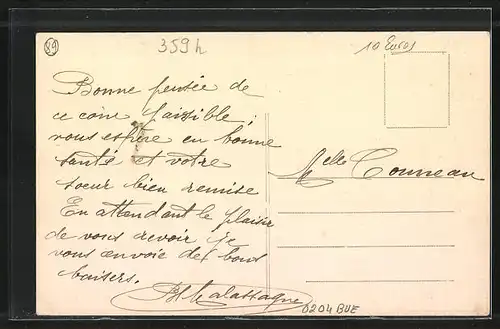 89
359h
10 Euros
Bonne pensée de
ce coin paisible ;
vous espère en bonne
santé et votre
soeur bien remise
En attendant le plaisir
de vous revoir je
vous envoie de bons
baisers.
Melle Conneau
0204 BUE